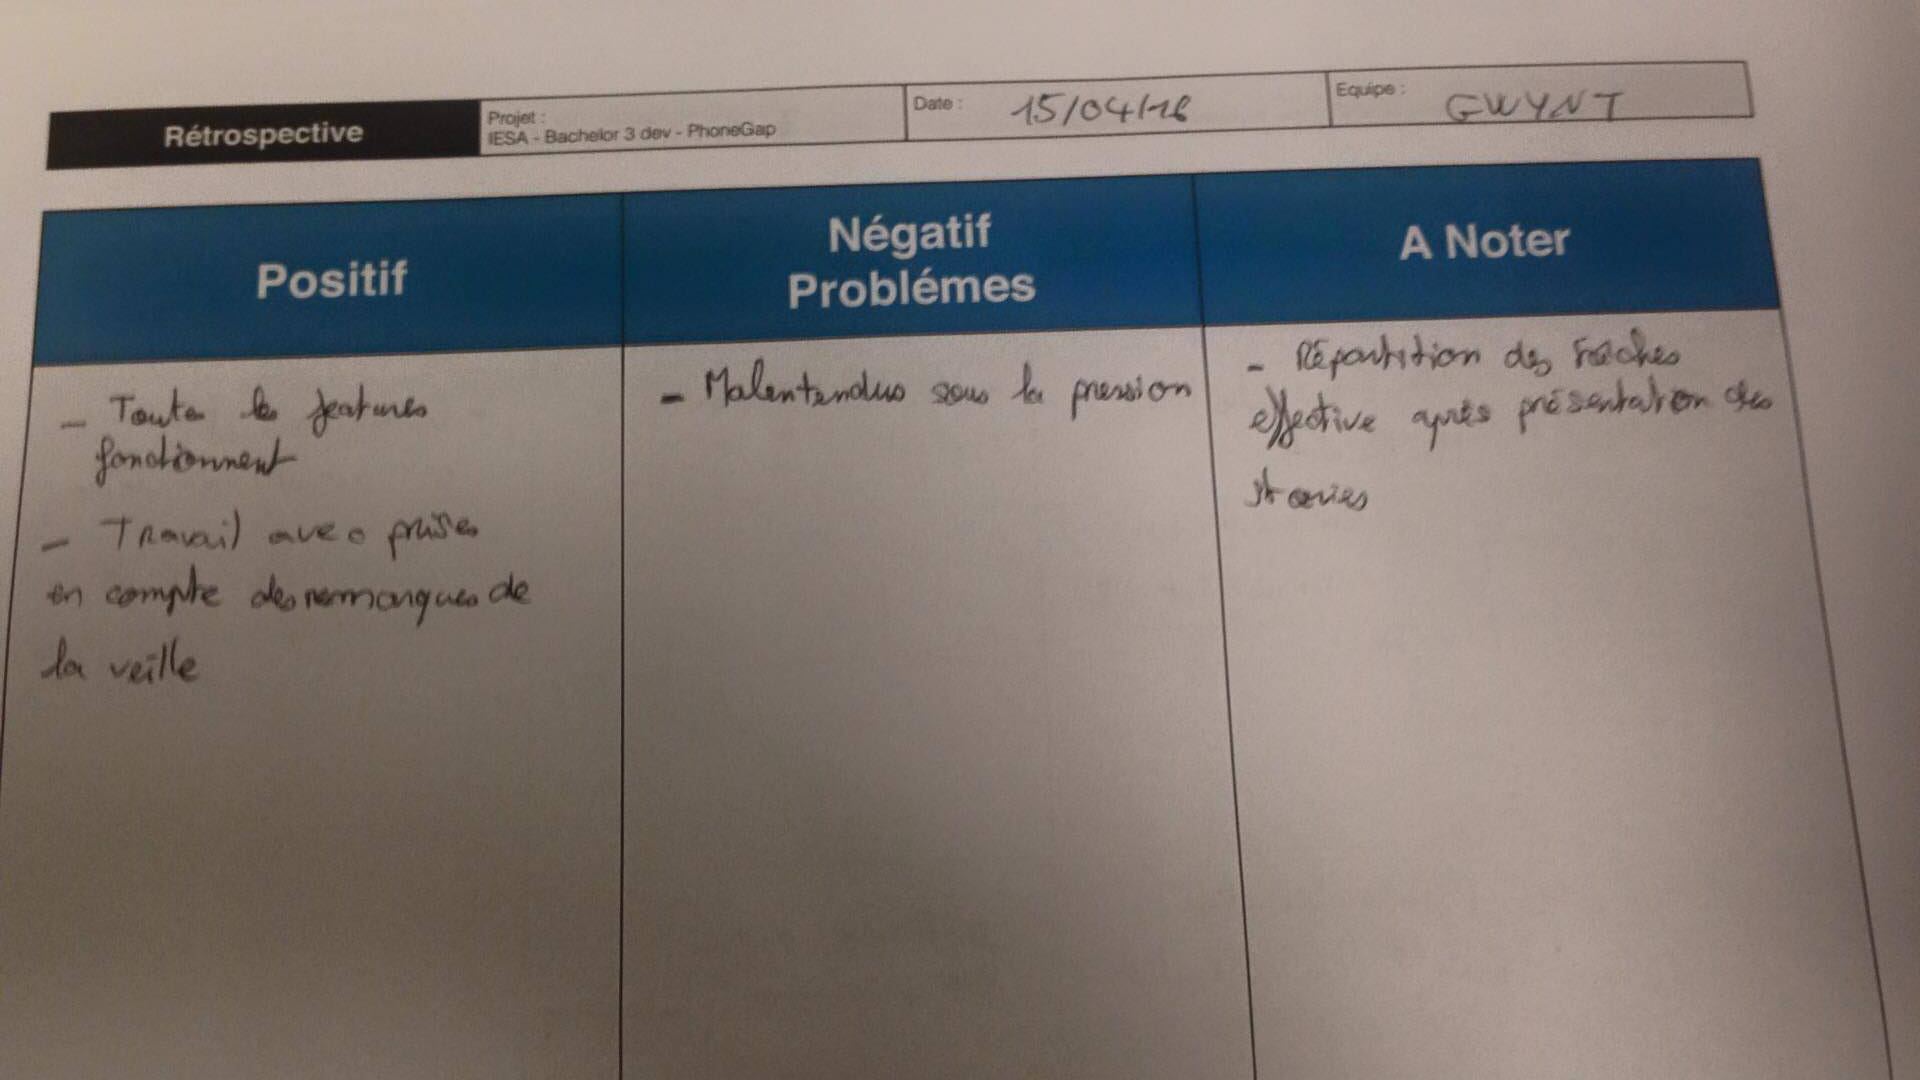 Rétrospective
Projet :
IESA - Bachelor 3 dev - PhoneGap
Date : 15/04/16
Equipe : GWYNT
Positif
- Toutes les features
fonctionnent
- Travail avec prises
en compte des remarques de
la veille
Négatif
Problémes
- Malentendus sous la pression
A Noter
- Répartition des tâches
effective après présentation des
stories